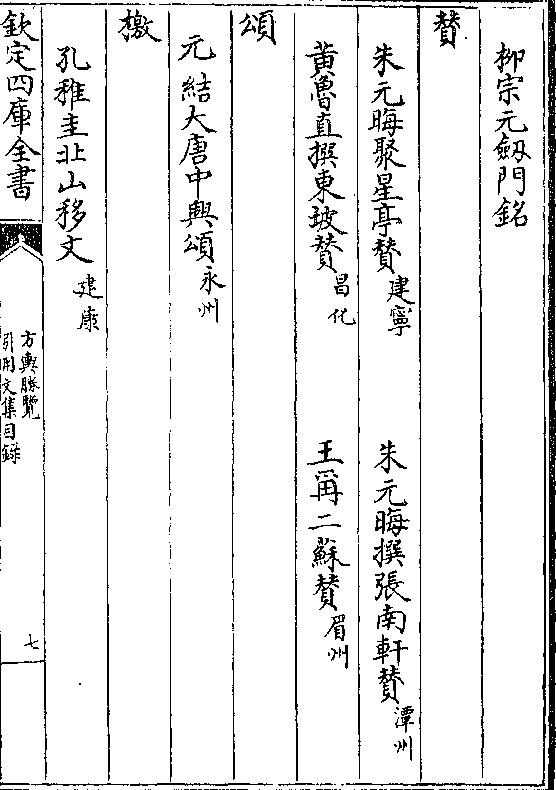 柳宗元劔門銘
賛
朱元晦聚星亭賛建寧　朱元晦撰張南軒賛潭州
黄魯直撰東坡賛昌化　王偁二蘇賛眉州
頌
元結大唐中興頌永州
檄
孔稚圭北山移文建康
欽定四庫全書
方輿勝覽
引用文集目録
七